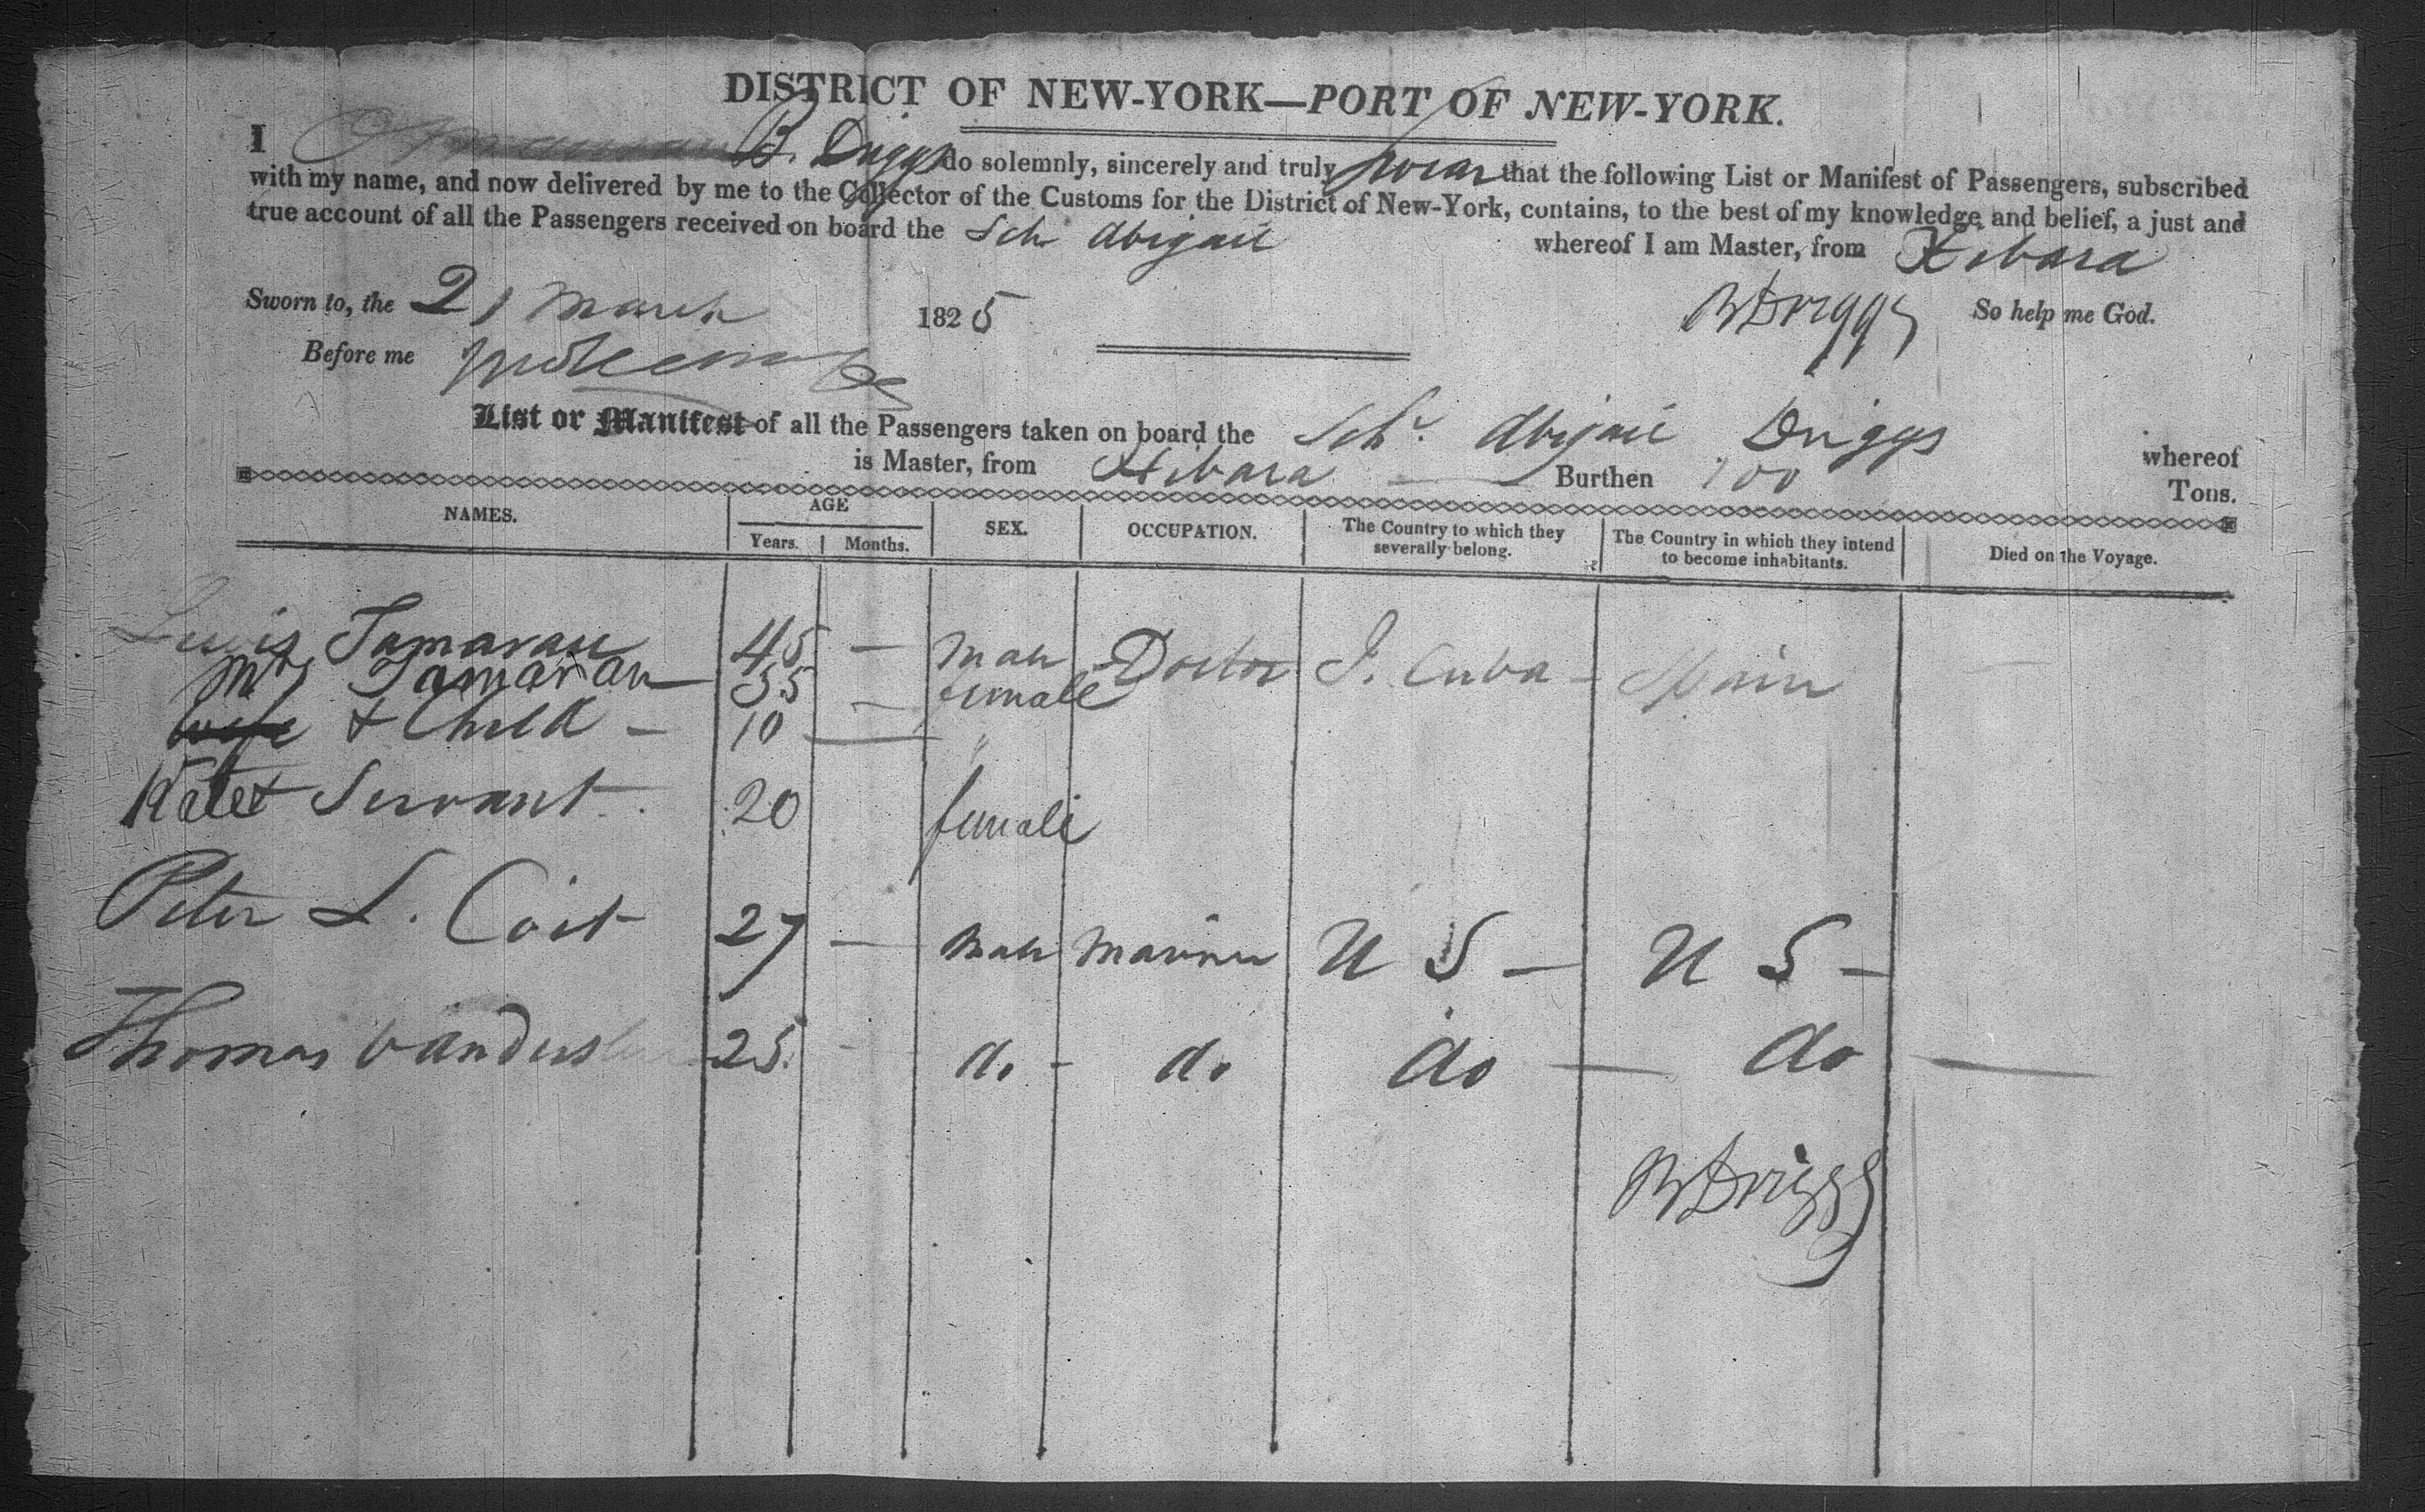 DISTRICT OF NEW-YORK—PORT OF NEW-YORK.
I B. Driggs do solemnly, sincerely and truly swear that the following List or Manifest of Passengers, subscribed
with my name, and now delivered by me to the Collector of the Customs for the District of New-York, contains, to the best of my knowledge and belief, a just and
true account of all the Passengers received on board the Sch Abigail whereof I am Master, from Xibara
Sworn to, the 21 March 1825 BDriggs So help me God.
Before me
List or Manifest of all the Passengers taken on board the Schr. Abigail Driggs whereof
is Master, from Xibara Burthen 100 Tons.
NAMES. AGE SEX. OCCUPATION. The Country to which they severally belong. The Country in which they intend to become inhabitants. Died on the Voyage.
Years. Months.
Lewis Tamarau 45 — Male Doctor I. Cuba — Spain
Mrs Tamarau — 35 — female
wife & Child — 10 — "
Kate Servant 20 female
Peter L. Coit 27 — Male Mariner U S — U S —
Thomas 25 - do - do do — do —
BDriggs